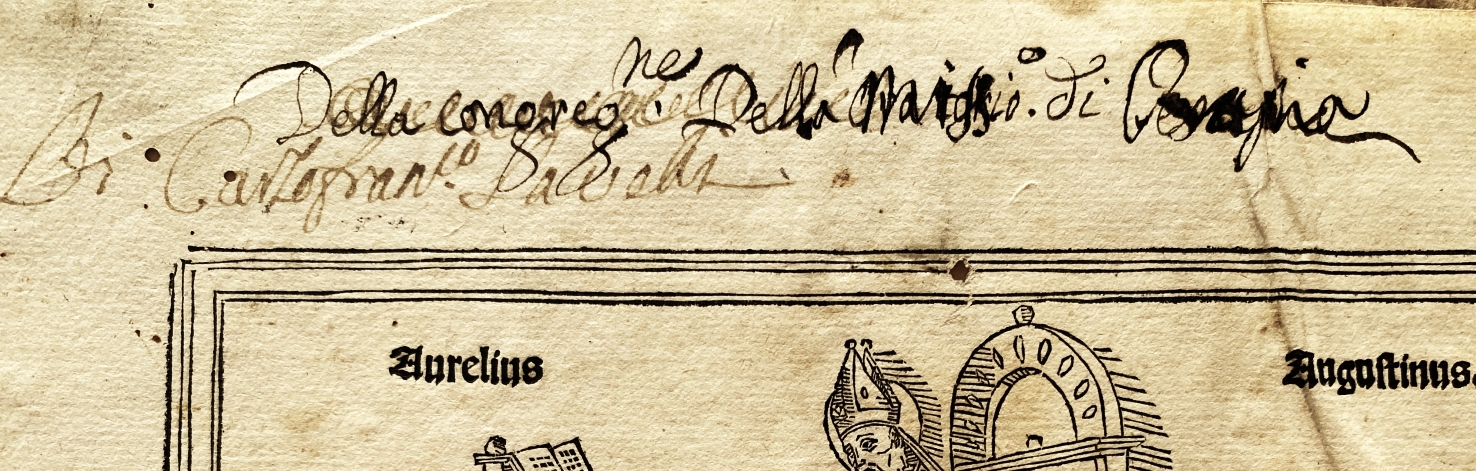 Della congreg.ne Della Miss.o di
Di Carlofran.co
Aurelius Augustinus.